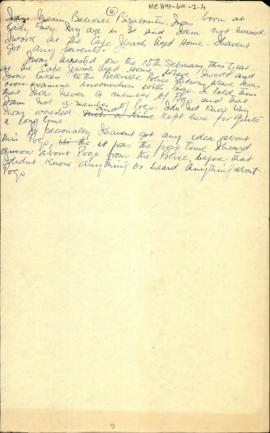 MCHM-6111-2-4
born at
Lady Grey. My age is 31 and I am not married.
I work at the Cape Jewish Aged Home. I haven't
got any parents.
I was arrested on the 15th February this year
at the Cape Jewish Aged Home where I work and
I was taken to the Bellville Police
in connection with Poqo. I told them
that I was never a member of Poqo and that
I am not a member of Poqo. I do not know why
they arrested and kept here for quite
a long time.
I personally I haven't got any idea about
this Poqo, it was the first time I heard
about Poqo from the Police, before that
I didn't know anything or heard anything about
Poqo